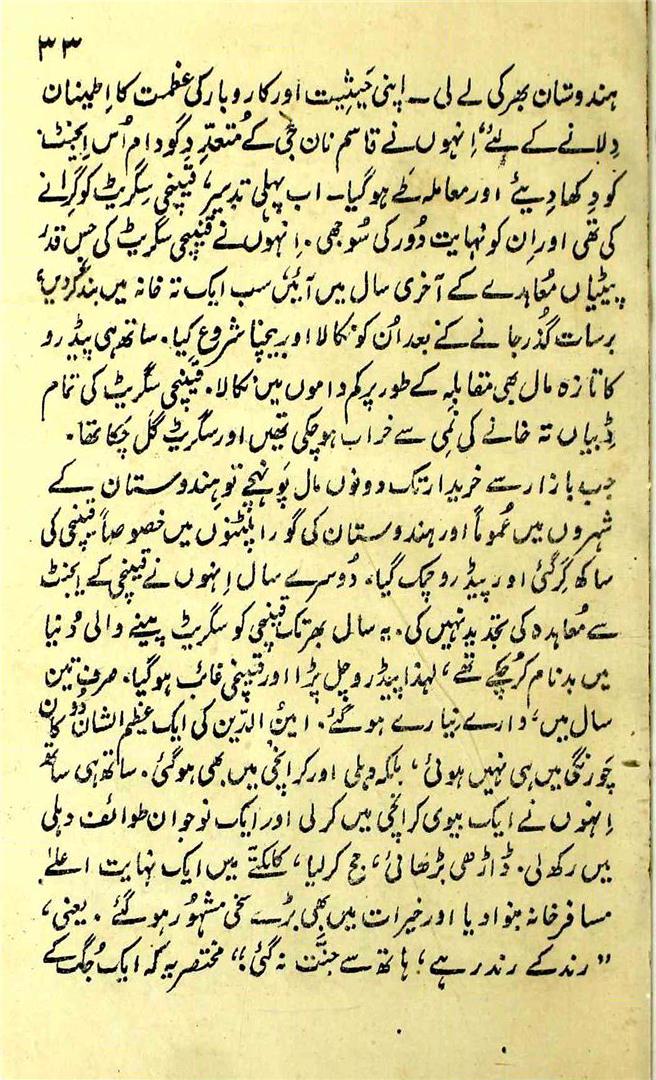 ۳۳
ہندوستان بھر کی لے لی ۔ اپنی حَیثیت اور کاروبار کی عظمت کا اِطمینان
دِلانے کے لیۓ، اِنہوں نے قاسم نان جی کے مُتعدِّد گودام اُس ایجنٹ
کو دِکھا دِیئے اور معاملہ طے ہو گیا ۔ اب پہلی تدبیر، قینچی سِگریٹ کو گِرانے
کی تھی اور اِن کو نہایت دُور کی سُوجھی . اِنہوں نے قینچی سگریٹ کی جس قدر
پیٹیاں مُعاہدے کے آخری سال میں آئیں، سب ایک تہ خانہ میں بند کر دیں،
برسات گُذر جانے کے بعد اُن کو نکالا اور بیچنا شروع کیا . ساتھ ہی پیڈرو
کا تازہ مال بھی مقابلہ کے طور پر کم داموں میں نکالا . قینچی سگریٹ کی تمام
ڈِبیاں تہ خانے کی نمی سے خراب ہو چکی تھیں اور سگریٹ گل چکا تھا .
جب بازار سے خریدار تک دونوں مال پَونہچے تو ہِندوستان کے
شہروں میں عُموماً اور ہندوستان کی گورا پلٹنوں میں خصوصاً قینچی کی
ساکھ گر گئی اور پیڈرو چمک گیا . دُوسرے سال اِنہوں نے قینچی کے ایجنٹ
سے مُعاہدہ کی تجدید نہیں کی . یہ سال بھر تک قینچی کو سگریٹ پینے والی دُنیا
میں بدنام کر چُکے تھے، لہٰذا پیڈرو چل پڑا اور قینچی غائب ہو گیا . صرف تین
سال میں، وارے نیارے ہو گئے . امینُ الدّین کی ایک عظیم الشان دُوکان
چَورنگی میں ہی نہیں ہوئی، بلکہ دہلی اور کرانچی میں بھی ہو گئی . ساتھ ہی ساتھ
اِنہوں نے ایک بیوی کرانچی میں کر لی اور ایک نوجوان طوائف دہلی
میں رکھ لی . ڈاڑھی بڑھائی، حج کر لیا، کلکتّے میں ایک نہایت اعلےٰ
مسافر خانہ بنوا دیا اور خیرات میں بھی بڑے سخی مشہُور ہو گئے . یعنی،
" رند کے رند رہے، ہاتھ سے جنّت نہ گئی، " مختصر یہ کہ ایک جُگ کے